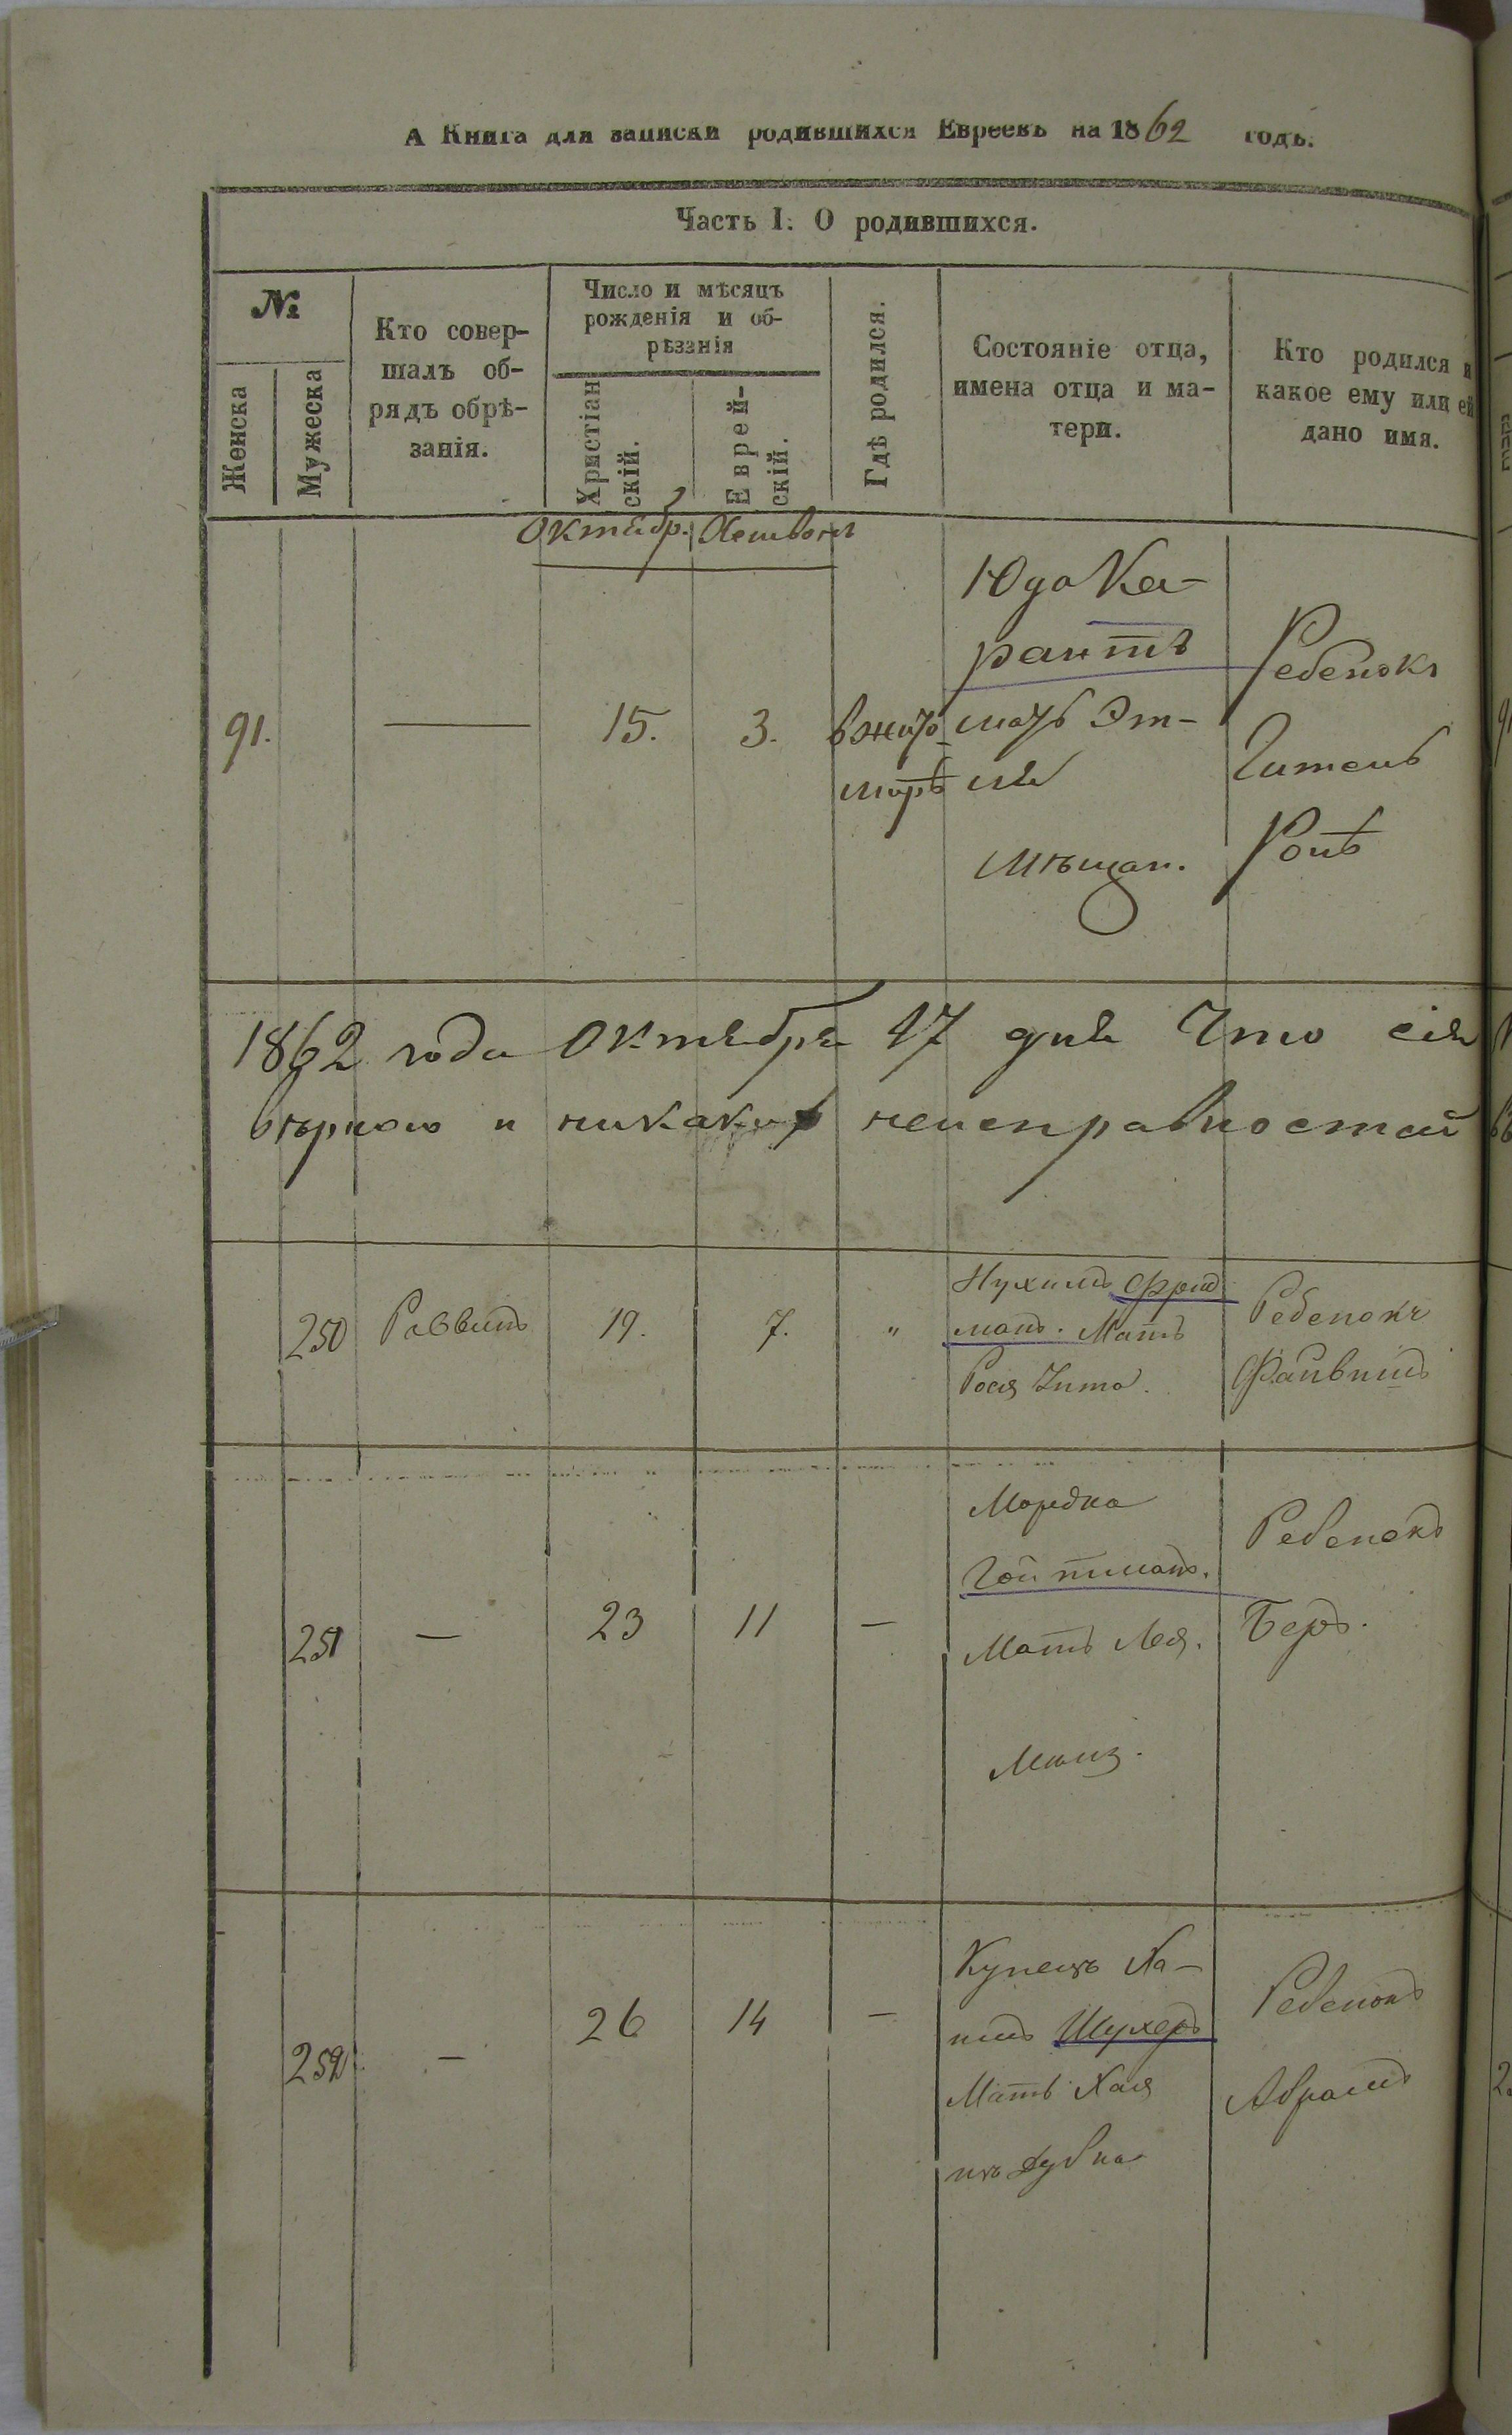 А Книга для записки родившихся Евреевъ на 1862 годъ.
Часть I. О родившихся.
№
Женска
Мужеска
Кто совер-
шалъ об-
рядъ обрѣ-
занія.
Число и мѣсяцъ
рожденія и об-
рѣзанія
Христіан
скій.
Еврей-
скій.
Гдѣ родился.
Состояніе отца,
имена отца и ма-
тери.
Кто родился и
какое ему или ей
дано имя.
Октябр. Хешвонъ
91.
—
15.
3.
в Жито-
мирѣ
Юдо Ка-
рантъ
мать Эт-
ля
мѣщан.
Ребенокъ
1862 года Октября 17 дня Что сія
вѣрною и никаких неисправностей
250
Раввинъ
19.
7.
"
Нухимъ Фрид
манъ. Мать
Рося
Ребенокъ
Файвишъ
251
—
23
11
—
Мордка
Гойтманъ.
Мать Лея.
Мѣщ.
Ребенокъ
Беръ.
252
—
26
14
—
Купецъ Ха-
имъ Шухеръ
Мать Хая
изъ Дубна
Ребенокъ
Абрамъ